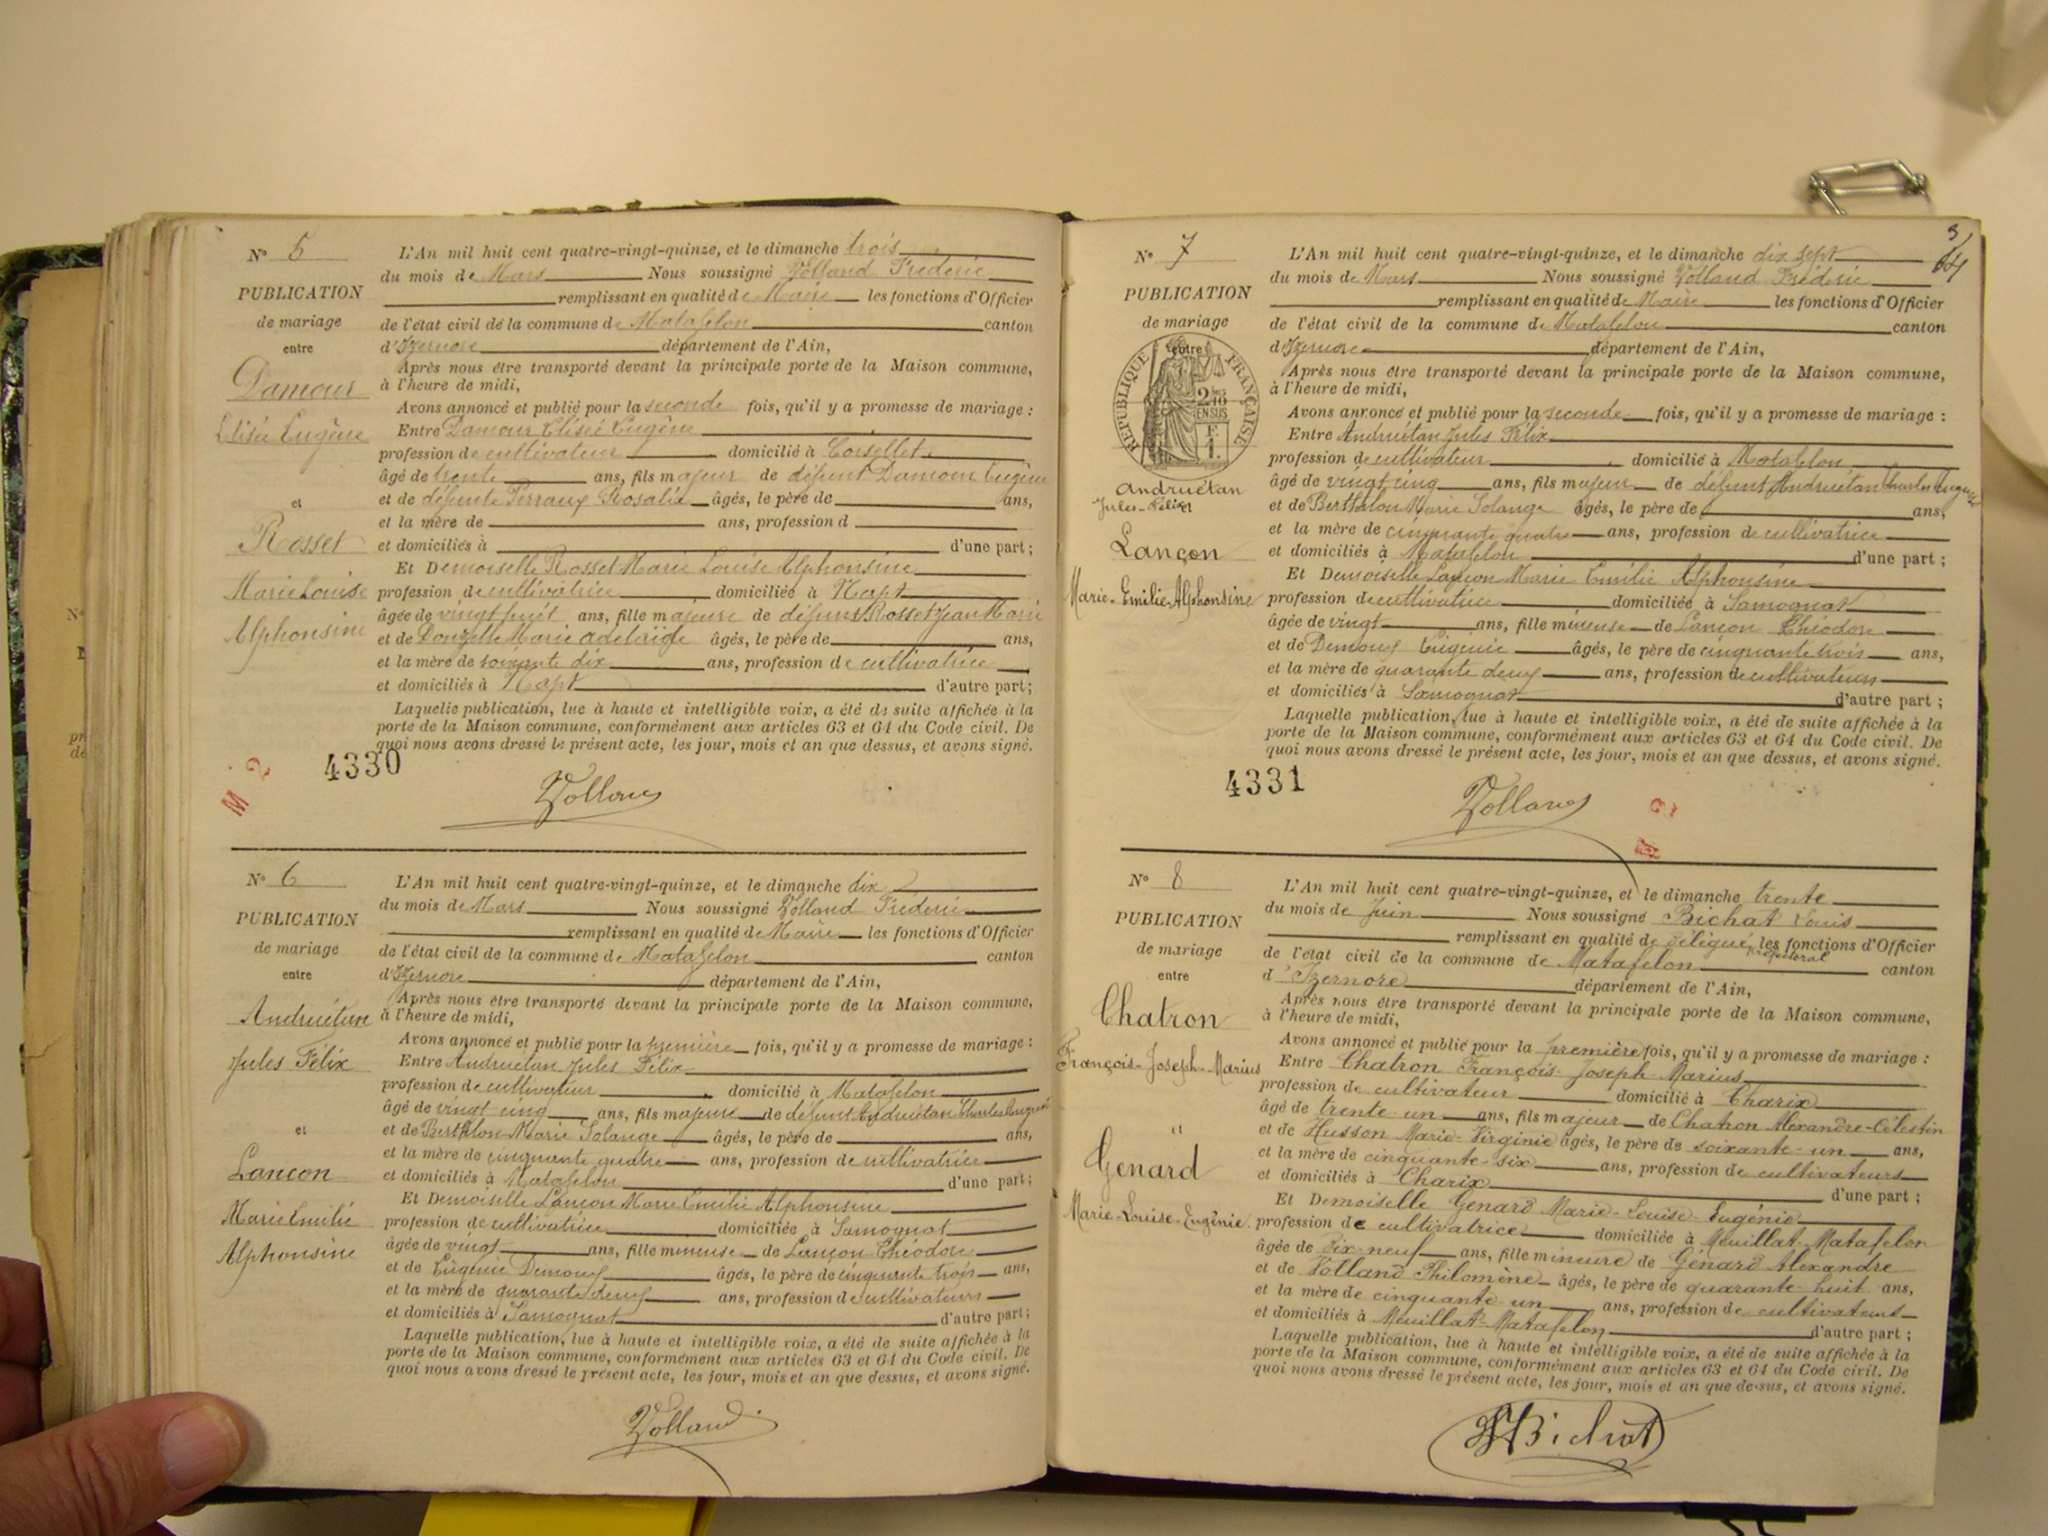 N° 5
PUBLICATION
de mariage
entre
Damour
Elisée Eugène
et
Rosset
Marie Louise
Alphonsine
L'An mil huit cent quatre-vingt-quinze, et le dimanche trois
du mois de Mars Nous soussigné Volland Frédéric
remplissant en qualité de Maire les fonctions d'Officier
de l'état civil de la commune de Matafelon canton
d'Izernore département de l'Ain,
Après nous être transporté devant la principale porte de la Maison commune,
à l'heure de midi,
Avons annoncé et publié pour la seconde fois, qu'il y a promesse de mariage :
Entre Damour Elisée Eugène
profession de cultivateur domicilié à Corsellet
âgé de trente ans, fils majeur de défunt Damour Eugène
et de défunte Perraux Rosalie âgés, le père de ans,
et la mère de ans, profession d
et domiciliés à d'une part ;
Et Demoiselle Rosset Marie Louise Alphonsine
profession de cultivatrice domiciliée à Napt
âgée de vingt huit ans, fille majeure de défunt Rosset Jean Marie
et de Marie adelaïde âgés, le père de ans,
et la mère de soixante dix ans, profession de cultivatrice
et domiciliés à Napt d'autre part ;
Laquelle publication, lue à haute et intelligible voix, a été de suite affichée à la
porte de la Maison commune, conformément aux articles 63 et 64 du Code civil. De
quoi nous avons dressé le présent acte, les jour, mois et an que dessus, et avons signé.
M 2
4330
Volland
N° 6
PUBLICATION
de mariage
entre
Andruétan
Jules Félix
et
Lançon
Marie Emilie
Alphonsine
L'An mil huit cent quatre-vingt-quinze, et le dimanche dix
du mois de Mars Nous soussigné Volland Frédéric
remplissant en qualité de Maire les fonctions d'Officier
de l'état civil de la commune de Matafelon canton
d'Izernore département de l'Ain,
Après nous être transporté devant la principale porte de la Maison commune,
à l'heure de midi,
Avons annoncé et publié pour la première fois, qu'il y a promesse de mariage :
Entre Andruétan Jules Félix
profession de cultivateur domicilié à Matafelon
âgé de vingt cinq ans, fils majeur de défunt Andruétan Charles Auguste
et de Berthelon Marie Solange âgés, le père de ans,
et la mère de cinquante quatre ans, profession de cultivatrice
et domiciliés à Matafelon d'une part ;
Et Demoiselle Lançon Marie Emilie Alphonsine
profession de cultivatrice domiciliée à Samognat
âgée de vingt ans, fille mineuse de Lançon Théodore
et de Eugénie Demoux âgés, le père de cinquante trois ans,
et la mère de quarante deux ans, profession de cultivateurs
et domiciliés à Samognat d'autre part ;
Laquelle publication, lue à haute et intelligible voix, a été de suite affichée à la
porte de la Maison commune, conformément aux articles 63 et 64 du Code civil. De
quoi nous avons dressé le présent acte, les jour, mois et an que dessus, et avons signé.
Volland
N° 7
PUBLICATION
de mariage
entre
RÉPUBLIQUE FRANÇAISE
Andruétan
Jules-Félix
et
Lançon
Marie-Emilie-Alphonsine
L'An mil huit cent quatre-vingt-quinze, et le dimanche dix sept
du mois de Mars Nous soussigné Volland Frédéric
remplissant en qualité de Maire les fonctions d'Officier
de l'état civil de la commune de Matafelon canton
d'Izernore département de l'Ain,
Après nous être transporté devant la principale porte de la Maison commune,
à l'heure de midi,
Avons annoncé et publié pour la seconde fois, qu'il y a promesse de mariage :
Entre Andruétan Jules Félix
profession de cultivateur domicilié à Matafelon
âgé de vingt cinq ans, fils majeur de défunt Andruétan Charles Auguste
et de Berthelon Marie Solange âgés, le père de ans,
et la mère de cinquante quatre ans, profession de cultivatrice
et domiciliés à Matafelon d'une part ;
Et Demoiselle Lançon Marie Emilie Alphonsine
profession de cultivatrice domiciliée à Samognat
âgée de vingt ans, fille mineuse de Lançon Théodore
et de Demoux Eugénie âgés, le père de cinquante trois ans,
et la mère de quarante deux ans, profession de cultivateurs
et domiciliés à Samognat d'autre part ;
Laquelle publication, lue à haute et intelligible voix, a été de suite affichée à la
porte de la Maison commune, conformément aux articles 63 et 64 du Code civil. De
quoi nous avons dressé le présent acte, les jour, mois et an que dessus, et avons signé.
4331
Volland
M 2
N° 8
PUBLICATION
de mariage
entre
Chatron
François-Joseph-Marius
et
Génard
Marie-Louise-Eugénie
L'An mil huit cent quatre-vingt-quinze, et le dimanche trente
du mois de Juin Nous soussigné Bichat Louis
remplissant en qualité de délégué préfectoral les fonctions d'Officier
de l'état civil de la commune de Matafelon canton
d'Izernore département de l'Ain,
Après nous être transporté devant la principale porte de la Maison commune,
à l'heure de midi,
Avons annoncé et publié pour la première fois, qu'il y a promesse de mariage :
Entre Chatron François-Joseph-Marius
profession de cultivateur domicilié à Charix
âgé de trente-un ans, fils majeur de Chatron Alexandre-Célestin
et de Husson Marie-Virginie âgés, le père de soixante-un ans,
et la mère de cinquante-six ans, profession de cultivateurs
et domiciliés à Charix d'une part ;
Et Demoiselle Génard Marie-Louise-Eugénie
profession de cultivatrice domiciliée à Meuillat-Matafelon
âgée de dix-neuf ans, fille mineure de Génard Alexandre
et de Volland Philomène âgés, le père de quarante-huit ans,
et la mère de cinquante-un ans, profession de cultivateurs
et domiciliés à Meuillat-Matafelon d'autre part ;
Laquelle publication, lue à haute et intelligible voix, a été de suite affichée à la
porte de la Maison commune, conformément aux articles 63 et 64 du Code civil. De
quoi nous avons dressé le présent acte, les jour, mois et an que dessus, et avons signé.
Bichat